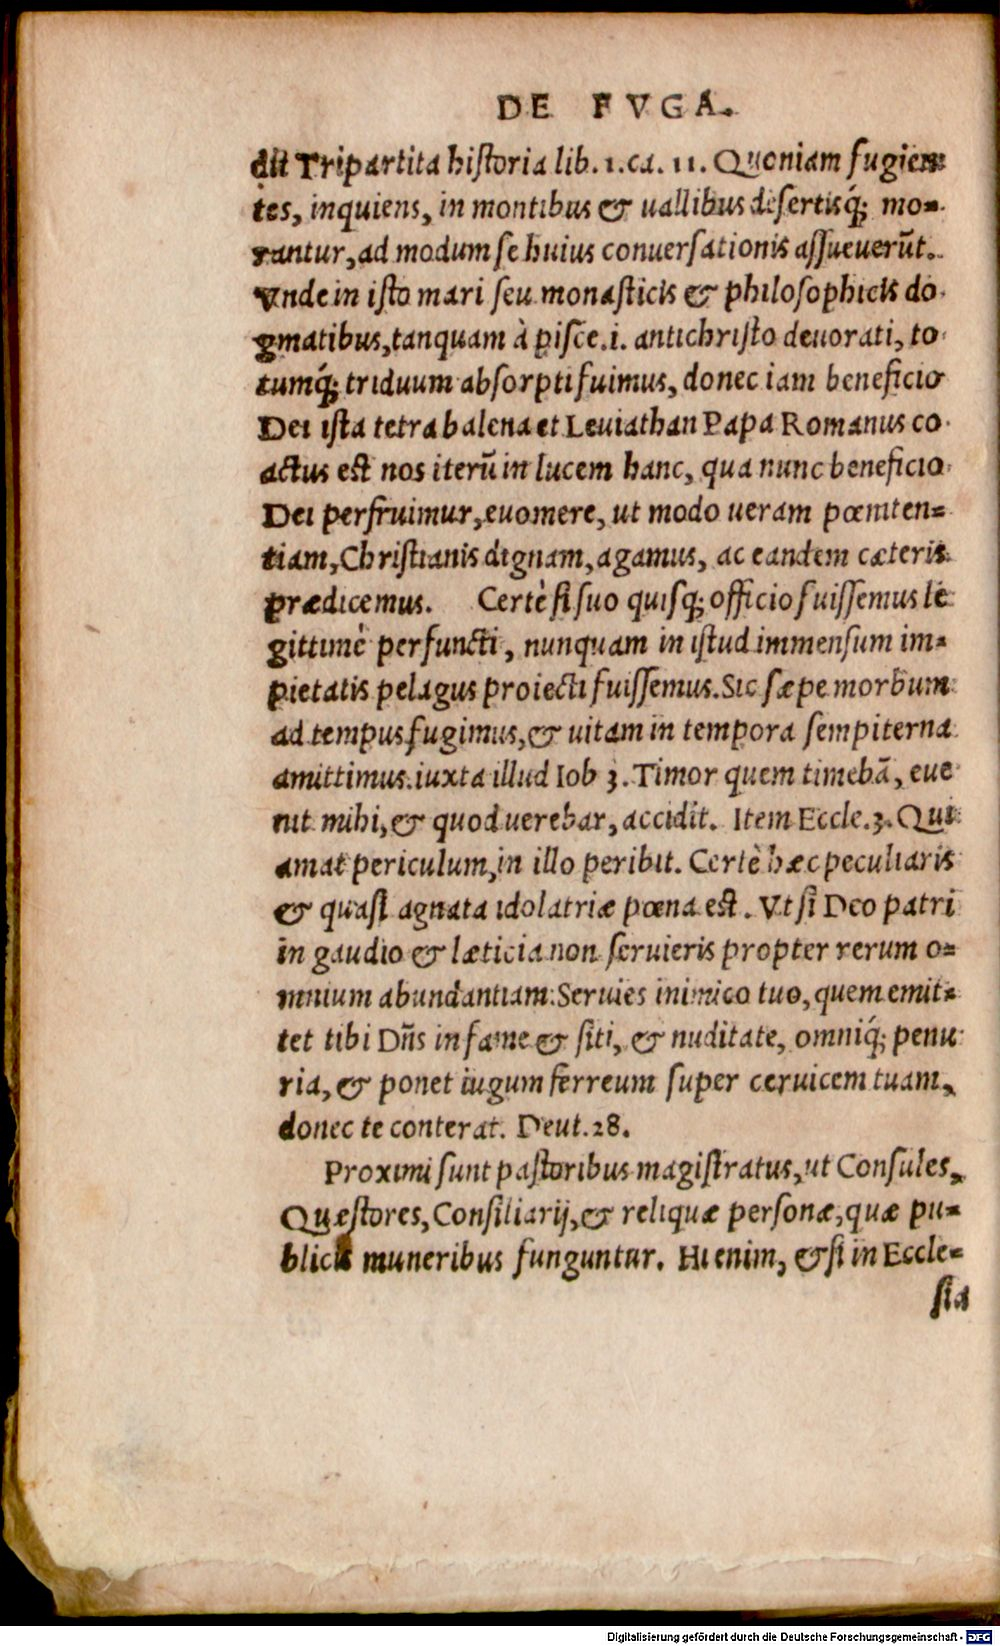 DE FVGA.
dit Tripartita historia lib. 1. ca. 11. Quoniam fugien-
tes, inquiens, in montibus & uallibus desertisq́; mo-
rantur, ad modum se huius conuersationis assueuerūt.
Vnde in isto mari seu monasticis & philosophicis do
gmatibus, tanquam à pisce .i. antichristo deuorati, to
tumq́; triduum absorpti fuimus, donec iam beneficio
Dei ista tetra balena et Leuiathan Papa Romanus co
actus est nos iterū in lucem hanc, qua nunc beneficio
Dei perfruimur, euomere, ut modo ueram pœniten-
tiam, Christianis dignam, agamus, ac eandem cæteris
prædicemus. Certè si suo quisq; officio fuissemus le
gittimè perfuncti, nunquam in istud immensum im-
pietatis pelagus proiecti fuissemus. Sic sæpe morbum
ad tempus fugimus, & uitam in tempora sempiterna
amittimus. iuxta illud Iob 3. Timor quem timebā, eue
nit mihi, & quod uerebar, accidit. Item Eccle. 3. Qui
amat periculum, in illo peribit. Certè hæc peculiaris
& quasi agnata idolatriæ pœna est. Vt si Deo patri
in gaudio & læticia non seruieris propter rerum o-
mnium abundantiam: Seruies inimico tuo, quem emit-
tet tibi Dn̄s in fame & siti, & nuditate, omniq́; penu
ria, & ponet iugum ferreum super ceruicem tuam,
donec te conterat. Deut. 28.
Proximi sunt pastoribus magistratus, ut Consules,
Quæstores, Consiliarij, & reliquæ personæ, quæ pu-
blicis muneribus funguntur. Hi enim, & si in Eccle-
sia
Digitalisierung gefördert durch die Deutsche Forschungsgemeinschaft - DFG